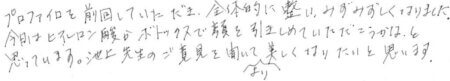 プロファイロを前回していただき、全体的に整い、みずみずしくなりました。
今日はヒアルロン酸かボトックスで顔を引きしめていただこうかな、と
思っています。池上先生のご意見を聞いて美しくなりたいと思います。
より